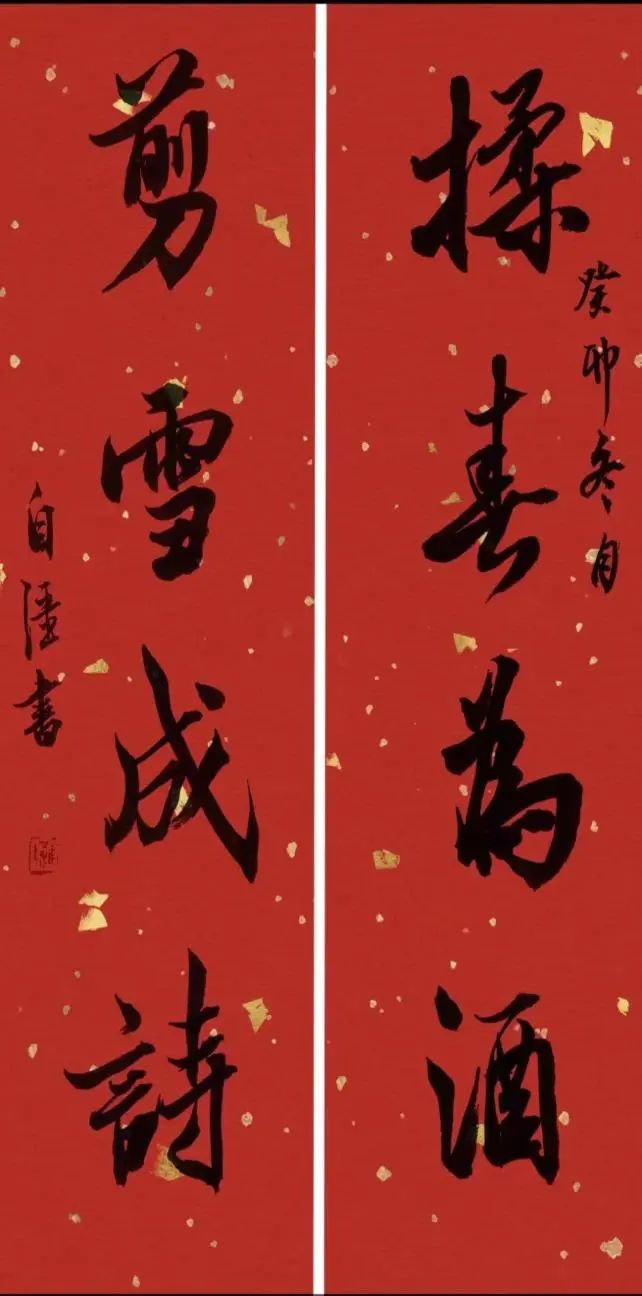 揉春為酒
癸卯冬月
剪雪成詩
自陸書